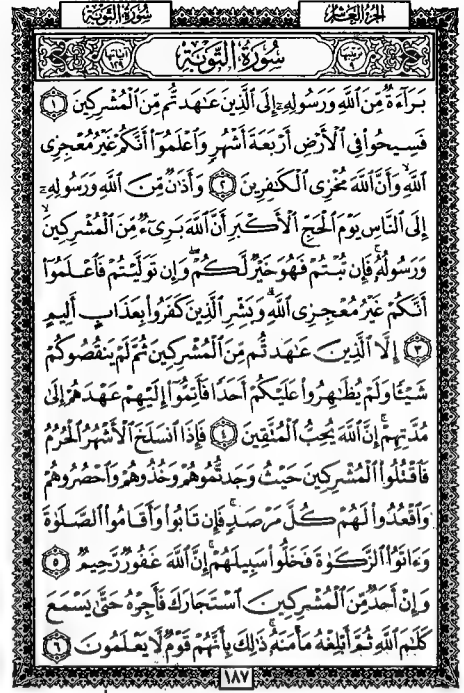 الجزء العاشر
سورة التوبة
ترتيبها ٩
سُورَةُ التَّوْبَةِ
آياتها ١٢٩
بَرَآءَةٌ مِّنَ ٱللَّهِ وَرَسُولِهِۦٓ إِلَى ٱلَّذِينَ عَٰهَدتُّم مِّنَ ٱلْمُشْرِكِينَ ١
فَسِيحُوا۟ فِى ٱلْأَرْضِ أَرْبَعَةَ أَشْهُرٍ وَٱعْلَمُوٓا۟ أَنَّكُمْ غَيْرُ مُعْجِزِى
ٱللَّهِ ۙ وَأَنَّ ٱللَّهَ مُخْزِى ٱلْكَٰفِرِينَ ٢ وَأَذَٰنٌ مِّنَ ٱللَّهِ وَرَسُولِهِۦٓ
إِلَى ٱلنَّاسِ يَوْمَ ٱلْحَجِّ ٱلْأَكْبَرِ أَنَّ ٱللَّهَ بَرِىٓءٌ مِّنَ ٱلْمُشْرِكِينَ ۙ
وَرَسُولُهُۥ ۚ فَإِن تُبْتُمْ فَهُوَ خَيْرٌ لَّكُمْ ۖ وَإِن تَوَلَّيْتُمْ فَٱعْلَمُوٓا۟
أَنَّكُمْ غَيْرُ مُعْجِزِى ٱللَّهِ ۗ وَبَشِّرِ ٱلَّذِينَ كَفَرُوا۟ بِعَذَابٍ أَلِيمٍ
٣ إِلَّا ٱلَّذِينَ عَٰهَدتُّم مِّنَ ٱلْمُشْرِكِينَ ثُمَّ لَمْ يَنقُصُوكُمْ
شَيْـًٔا وَلَمْ يُظَٰهِرُوا۟ عَلَيْكُمْ أَحَدًا فَأَتِمُّوٓا۟ إِلَيْهِمْ عَهْدَهُمْ إِلَىٰ
مُدَّتِهِمْ ۚ إِنَّ ٱللَّهَ يُحِبُّ ٱلْمُتَّقِينَ ٤ فَإِذَا ٱنسَلَخَ ٱلْأَشْهُرُ ٱلْحُرُمُ
فَٱقْتُلُوا۟ ٱلْمُشْرِكِينَ حَيْثُ وَجَدتُّمُوهُمْ وَخُذُوهُمْ وَٱحْصُرُوهُمْ
وَٱقْعُدُوا۟ لَهُمْ كُلَّ مَرْصَدٍ ۚ فَإِن تَابُوا۟ وَأَقَامُوا۟ ٱلصَّلَوٰةَ
وَءَاتَوُا۟ ٱلزَّكَوٰةَ فَخَلُّوا۟ سَبِيلَهُمْ ۚ إِنَّ ٱللَّهَ غَفُورٌ رَّحِيمٌ ٥
وَإِنْ أَحَدٌ مِّنَ ٱلْمُشْرِكِينَ ٱسْتَجَارَكَ فَأَجِرْهُ حَتَّىٰ يَسْمَعَ
كَلَٰمَ ٱللَّهِ ثُمَّ أَبْلِغْهُ مَأْمَنَهُۥ ۚ ذَٰلِكَ بِأَنَّهُمْ قَوْمٌ لَّا يَعْلَمُونَ ٦
١٨٧